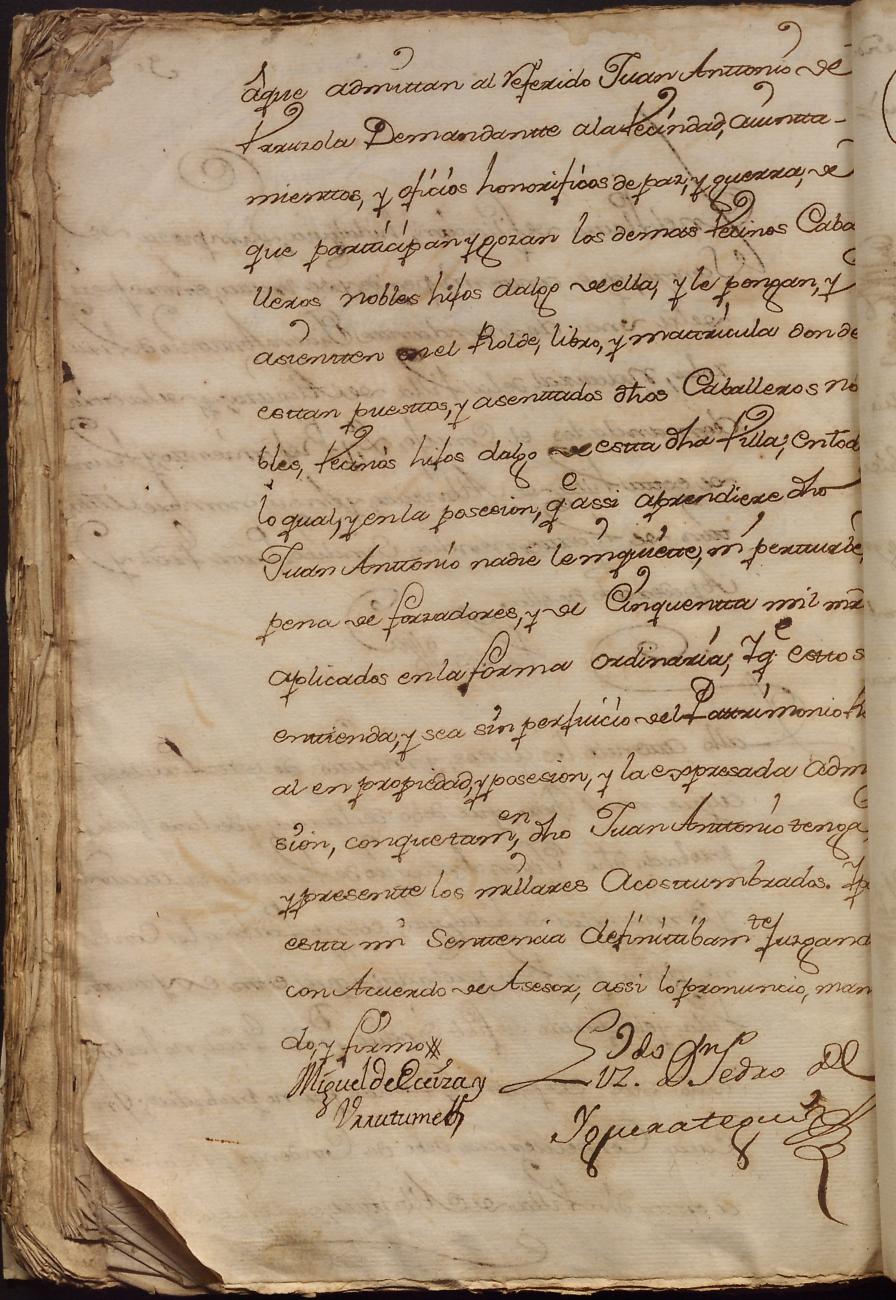 âque admittan al referido Juan Anttonio de
Vrruzola Demandante ala Vecindad, aiuntta-
mienttos, y oficios honorificos de paz, y guerra, de
que partticipan y gozan los demas Vecinos Caba
lleros nobles hijos dalgo de ella, y le pongan, y
asientten en el Rolde, libro, y mattricula donde
esttan puesttos, y asenttados dhos Caballeros no
bles, Vecinos hijos dalgo de estta dha Villa; en tod
lo qual, y en la posesion, q̃ assi aprendiere dho
Juan Anttonio nadie le inquiette, ni pertturbe,
pena de forzadores, y de Cinquentta mil mrs
aplicados en la forma ordinaria; Y q̃ estto s
enttienda, y sea sin perjuicio del Pattrimonio R
al en propiedad, y posesion, y la expresada admi
sion, con que tamen, dho Juan Anttonio tenga,
y presentte los millares Acosttumbrados. Y p
estta mi Senttencia definitibamte juzgand
con Acuerdo de Asesor, assi lo pronuncio, man
do, y firmo
Miguel de                Lizdo Dn Pedro de